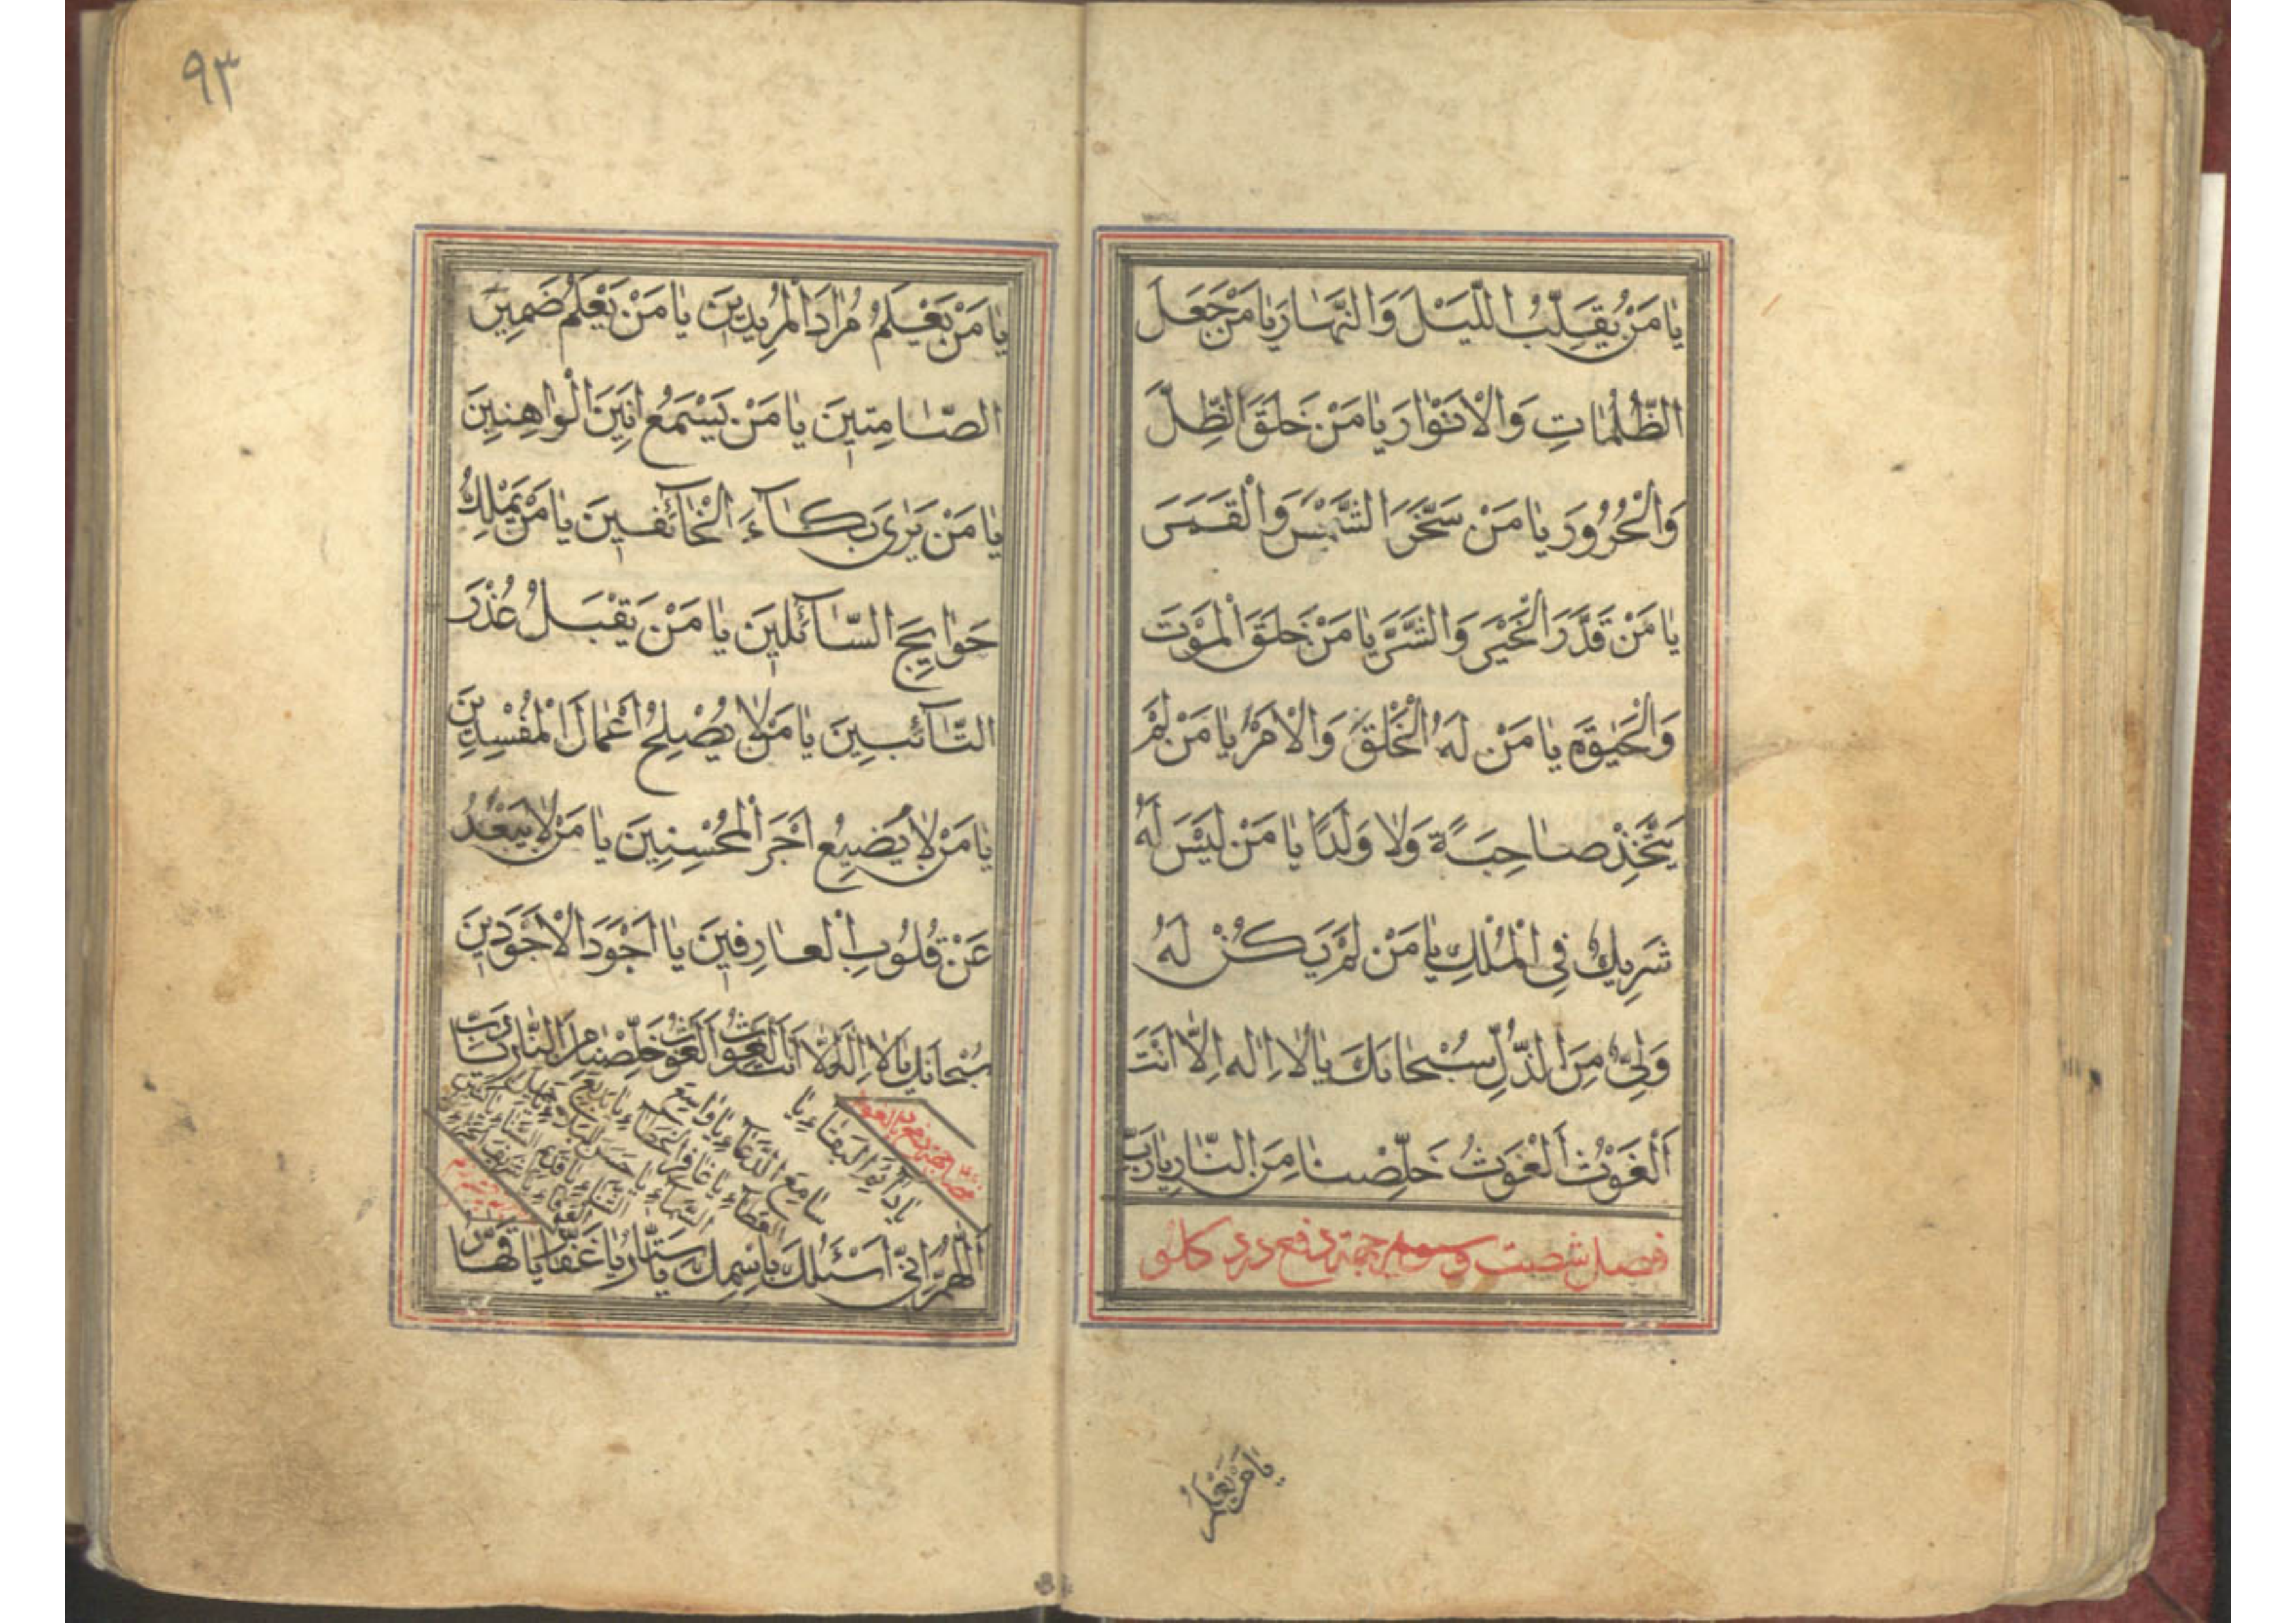 يا مَنْ يُقَلِّبُ اللَّيْلَ وَالنَّهارَ يا مَنْ جَعَلَ
الظُّلُماتِ وَالْاَنْوارَ يا مَنْ خَلَقَ الظِّلَّ
وَالْحَرُورَ يا مَنْ سَخَّرَ الشَّمْسَ وَالْقَمَرَ
يا مَنْ قَدَّرَ الْخَيْرَ وَالشَّرَّ يا مَنْ خَلَقَ الْمَوْتَ
وَالْحَيٰوةَ يا مَنْ لَهُ الْخَلْقُ وَالْاَمْرُ يا مَنْ لَمْ
يَتَّخِذْ صاحِبَةً وَلا وَلَدًا يا مَنْ لَيْسَ لَهُ
شَرِيكٌ فِى الْمُلْكِ يا مَنْ لَمْ يَكُنْ لَهُ
وَلِىٌّ مِنَ الذُّلِّ سُبْحانَكَ يا لا اِلهَ اِلّا اَنْتَ
اَلْغَوْثَ اَلْغَوْثَ خَلِّصْنا مِنَ النّارِ يا رَبِّ
فصل شصت و سوم جهة دفع درد کلو
يا مَنْ يَعْلَمُ
٩٣
يا مَنْ يَعْلَمُ مُرادَ الْمُرِيدِينَ يا مَنْ يَعْلَمُ ضَمِيرَ
الصّامِتِينَ يا مَنْ يَسْمَعُ اَنِينَ الْواهِنِينَ
يا مَنْ يَرٰى بُكآءَ الْخآئِفِينَ يا مَنْ يَمْلِكُ
حَوايِجَ السّآئِلِينَ يا مَنْ يَقْبَلُ عُذْرَ
التّآئِبِينَ يا مَنْ لا يُصْلِحُ اَعْمالَ الْمُفْسِدِينَ
يا مَنْ لا يُضِيعُ اَجْرَ الْمُحْسِنِينَ يا مَنْ لا يَبْعُدُ
عَنْ قُلُوبِ الْعارِفِينَ يا اَجْوَدَ الْاَجْوَدِينَ
سُبْحانَكَ يا لا اِلهَ اِلّا اَنْتَ الْغَوْثَ الْغَوْثَ خَلِّصْنا مِنَ النّارِ يا رَبِّ
يا دائِمَ الْبَقاءِ يا
سامِعَ الدُّعاءِ يا واسِعَ
الْعَطاءِ يا غافِرَ الْخَطاءِ يا بَدِيعَ
السَّماءِ يا حَسَنَ الْبَلاءِ يا جَمِيلَ
الثَّناءِ يا قَدِيمَ السَّناءِ يا
اَللّهُمَّ اِنّى اَسْئَلُكَ بِاسْمِكَ يا سَتّارُ يا غَفّارُ يا قَهّارُ